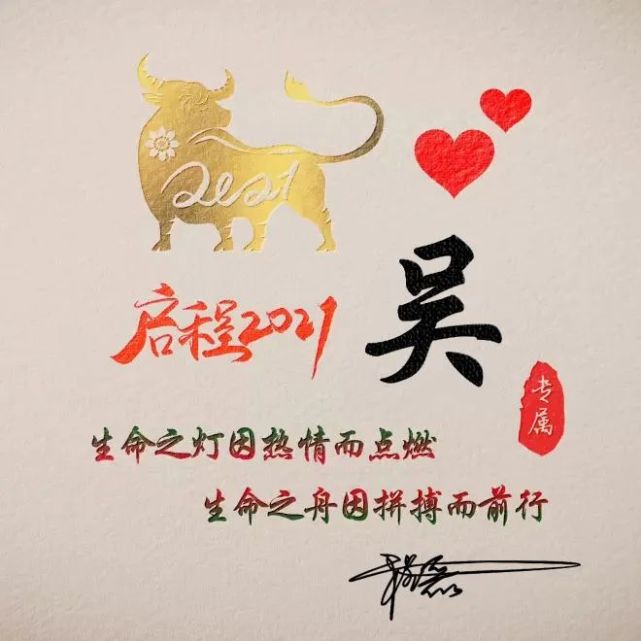 2021
启程2021
吴
专属
生命之灯因热情而点燃
生命之舟因拼搏而前行